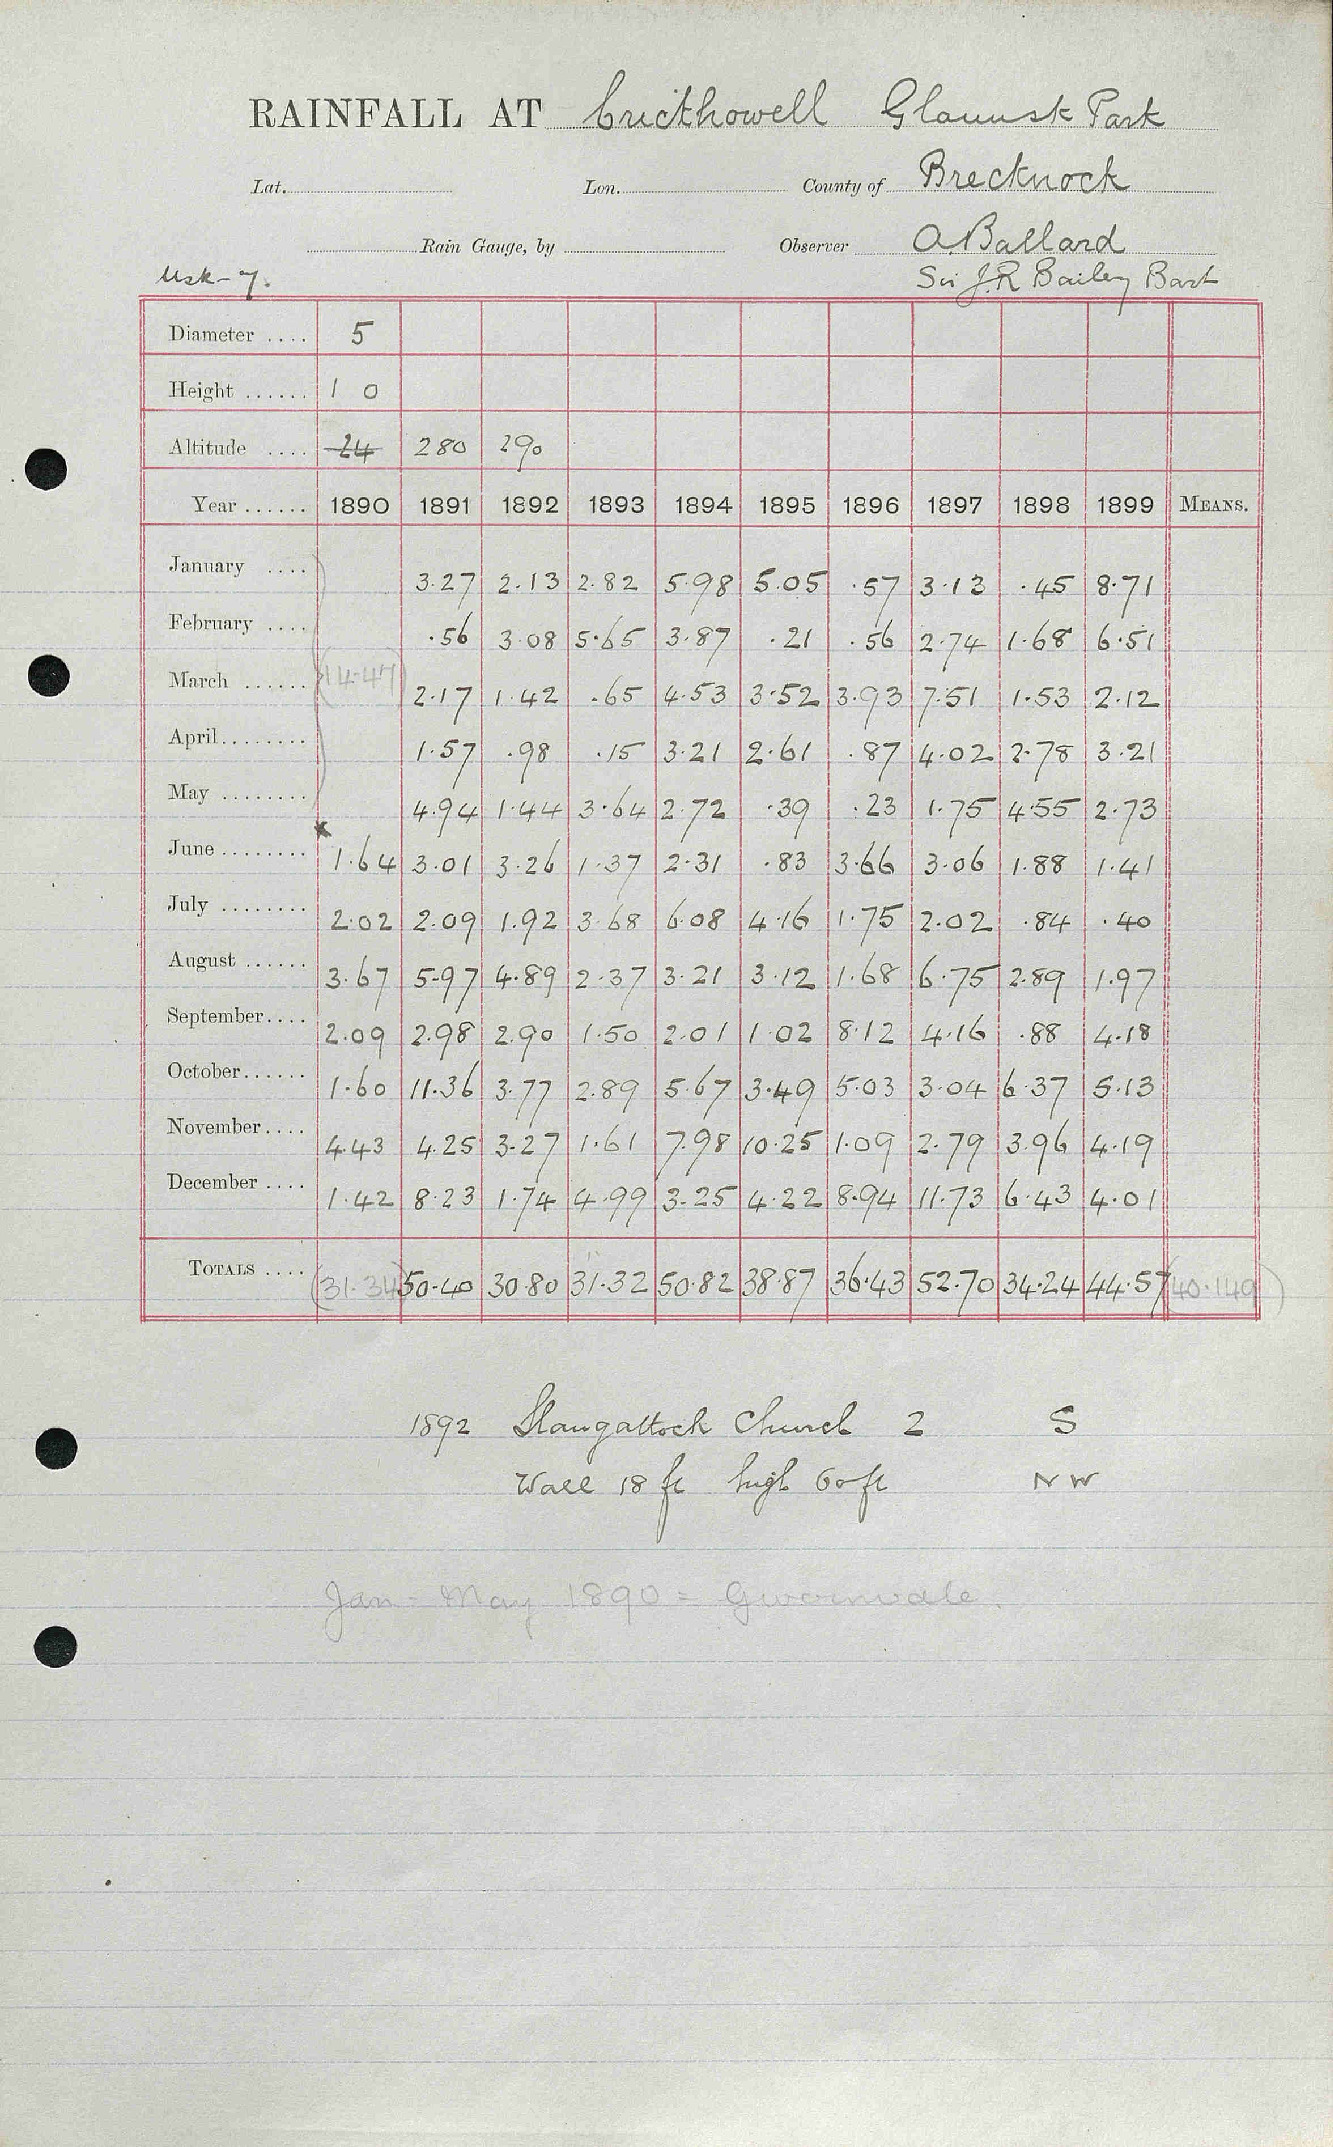 RAINFALL AT Crickhowell Glanusk Park
Lat. Lon. County of Brecknock
Rain Gauge, by Observer O.Ballard
Usk-7. Sir J.R Bailey Bart
Diameter .... 5
Height ...... 1 0
Altitude .... 24 280 290
Year ...... 1890 1891 1892 1893 1894 1895 1896 1897 1898 1899 MEANS.
January .... 3.27 2.13 2.82 5.98 5.05 .57 3.13 .45 8.71
February .... .56 3.08 5.65 3.87 .21 .56 2.74 1.68 6.51
March ...... (14.47) 2.17 1.42 .65 4.53 3.52 3.93 7.51 1.53 2.12
April........ 1.57 .98 .15 3.21 2.61 .87 4.02 2.78 3.21
May ........ 4.94 1.44 3.64 2.72 .39 .23 1.75 4.55 2.73
June ........ x 1.64 3.01 3.26 1.37 2.31 .83 3.66 3.06 1.88 1.41
July ........ 2.02 2.09 1.92 3.68 6.08 4.16 1.75 2.02 .84 .40
August ...... 3.67 5.97 4.89 2.37 3.21 3.12 1.68 6.75 2.89 1.97
September.... 2.09 2.98 2.90 1.50 2.01 1.02 8.12 4.16 .88 4.18
October...... 1.60 11.36 3.77 2.89 5.67 3.49 5.03 3.04 6.37 5.13
November.... 4.43 4.25 3.27 1.61 7.98 10.25 1.09 2.79 3.96 4.19
December .... 1.42 8.23 1.74 4.99 3.25 4.22 8.94 11.73 6.43 4.01
TOTALS .... (31.34) 50.40 30.80 31.32 50.82 38.87 36.43 52.70 34.24 44.57 (40.149)
1892 Llangattock Church 2 S
Wall 18 ft high 60 ft NW
Jan - May 1890 = Gwernvale.